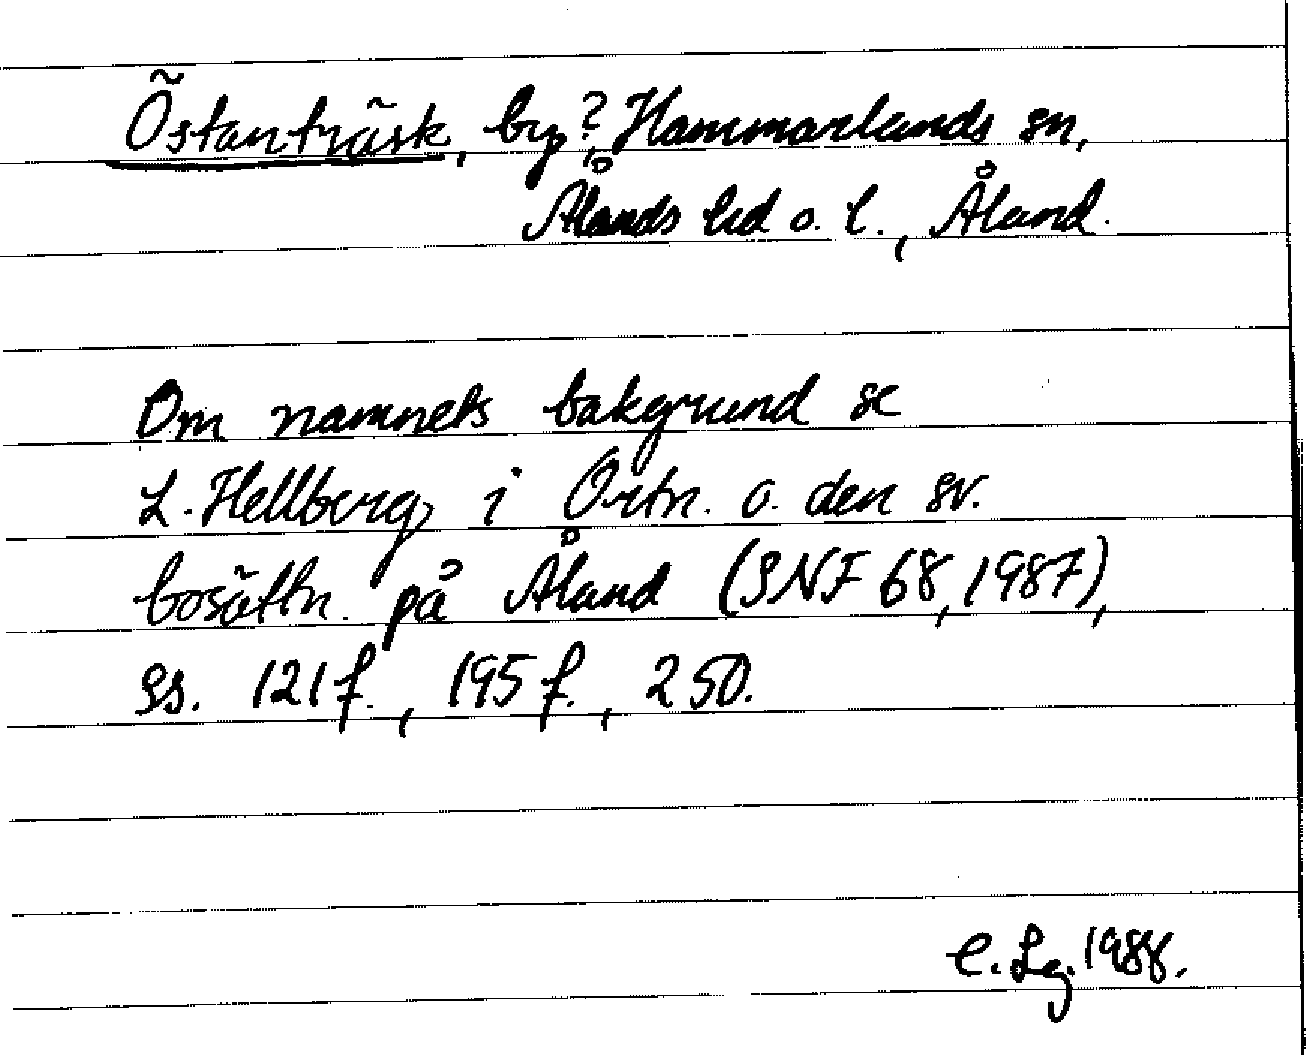 Östanträsk, by?, Hammarlands sn,
Ålands hd o. l., Åland.
Om namnets bakgrund se
L. Hellberg i Ortn. o. den sv.
bosättn. på Åland (SNF 68, 1987),
ss. 121 f., 195 f., 250.
C. Lg. 1988.